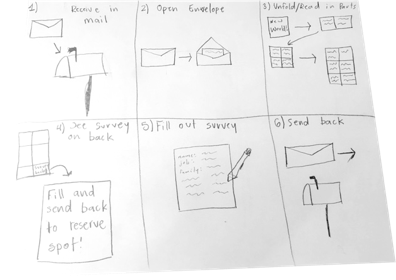 1) Receive in
mail
2) Open Envelope
3) Unfold/Read in Parts
New
World!
4) See survey
on back
Fill and
send back
to reserve
spot!
5) Fill out survey
name:
job:
family:
6) Send back